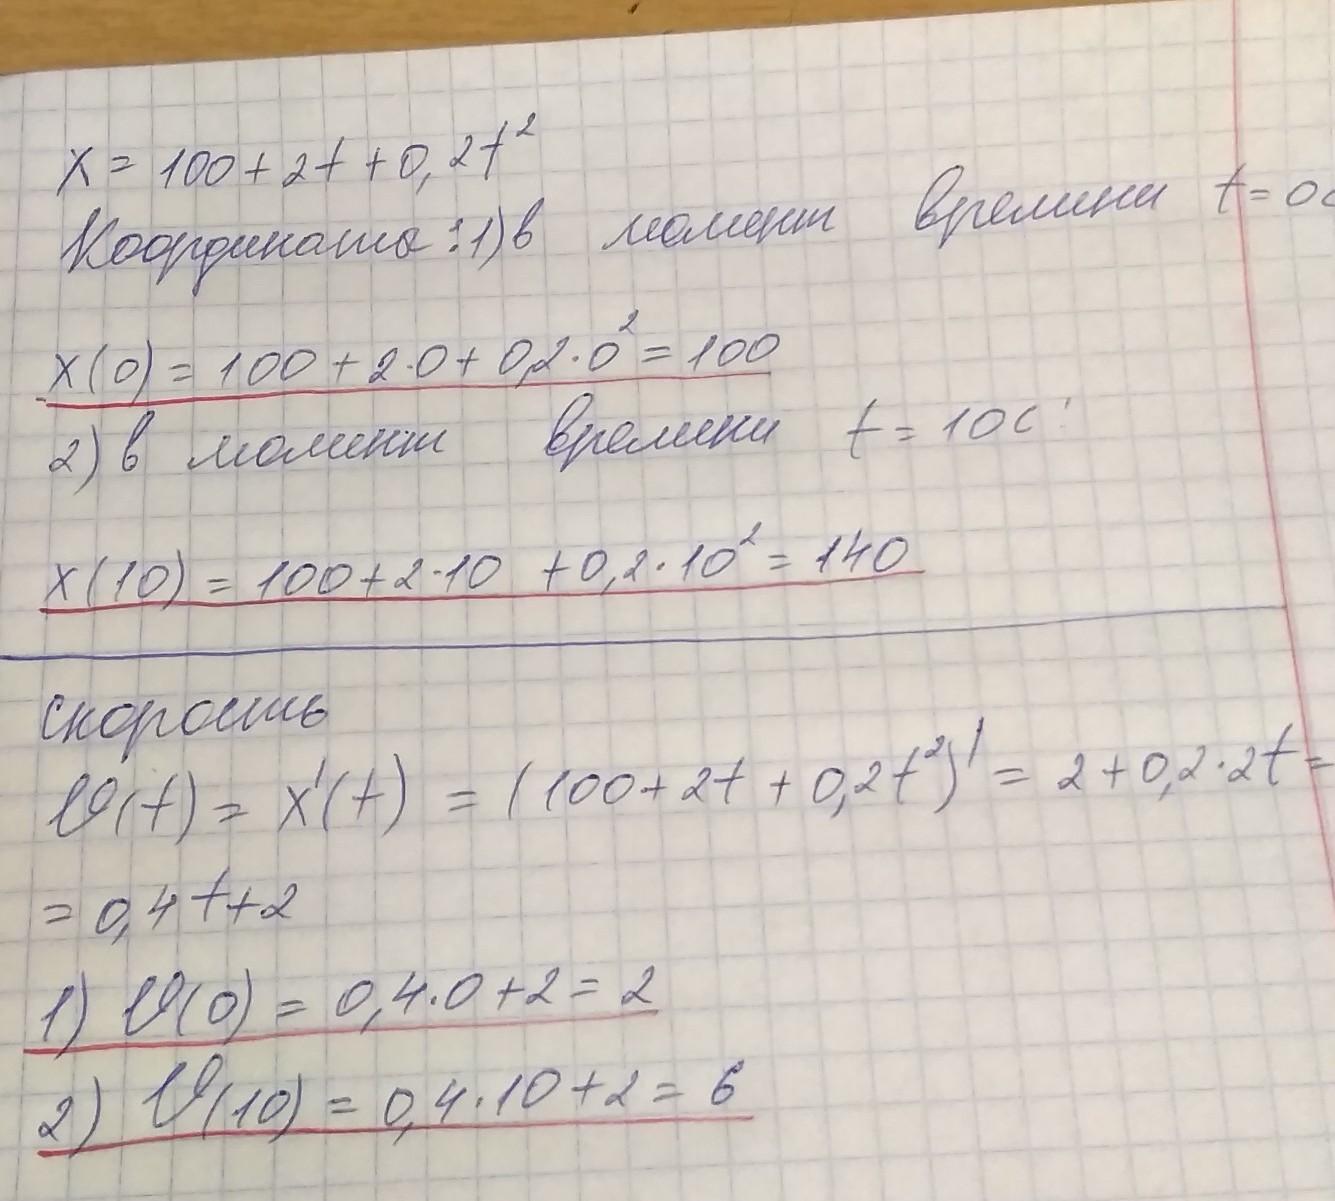 x = 100 + 2t + 0,2t²
Координаты: 1) в момент времени t = 0с
x(0) = 100 + 2·0 + 0,2·0² = 100
2) в момент времени t = 10с
x(10) = 100 + 2·10 + 0,2·10² = 140
скорость
v(t) = x'(t) = (100 + 2t + 0,2t²)' = 2 + 0,2·2t =
= 0,4t + 2
1) v(0) = 0,4·0 + 2 = 2
2) v(10) = 0,4·10 + 2 = 6